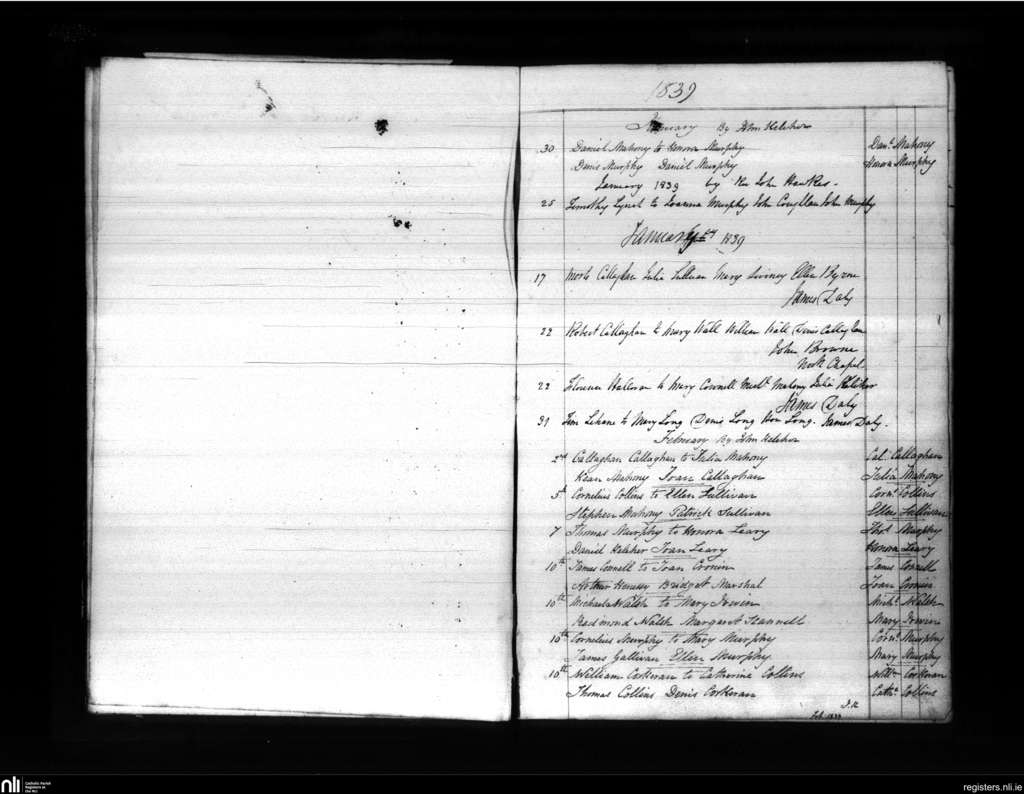 1839
January By Wm Keleher
30 Daniel Mahony to Honora Murphy Danl. Mahony
Denis Murphy Daniel Murphy Honora Murphy
January 1839 by Rev John Hawkes
25 Timothy Lynch to Joanna Murphy John Coughlan John Murphy
January 1839
17 Mort Callaghan Julia Sullivan Mary Ellen Byrne
James Daly
22 Robert Callaghan to Mary Wall William Wall Denis Callaghan
John Browne
Chapel
22 Florence to Mary Connell Mahony Julia Keleher
James Daly
31 Tim Lehane to Mary Long Denis Long Hon Long. James Daly.
February By Wm Keleher
2nd Callaghan Callaghan to Julia Mahony Cal. Callaghan
Kean Mahony Joan Callaghan Julia Mahony
5th Cornelius Collins to Ellen Sullivan Corns. Collins
Stephen Mahony Patrick Sullivan Ellen Sullivan
7 Thomas Murphy to Honora Leary Thos. Murphy
Daniel Keleher Joan Leary Honora Leary
10th James Connell to Joan Cronin James Connell
Arthur Henessy Bridget Marshal Joan Cronin
10th Michael Walsh to Mary Irwin Michl. Walsh
Redmond Walsh Margaret Scannell Mary Irwin
10th Cornelius Murphy to Mary Murphy Corns. Murphy
James Gallivan Ellen Murphy Mary Murphy
10th William Corkeran to Catherine Collins Willm. Corkeran
Thomas Collins Denis Corkeran Cathe. Collins
Feb. 1839
nli
Catholic Parish
Registers at
the NLI
registers.nli.ie